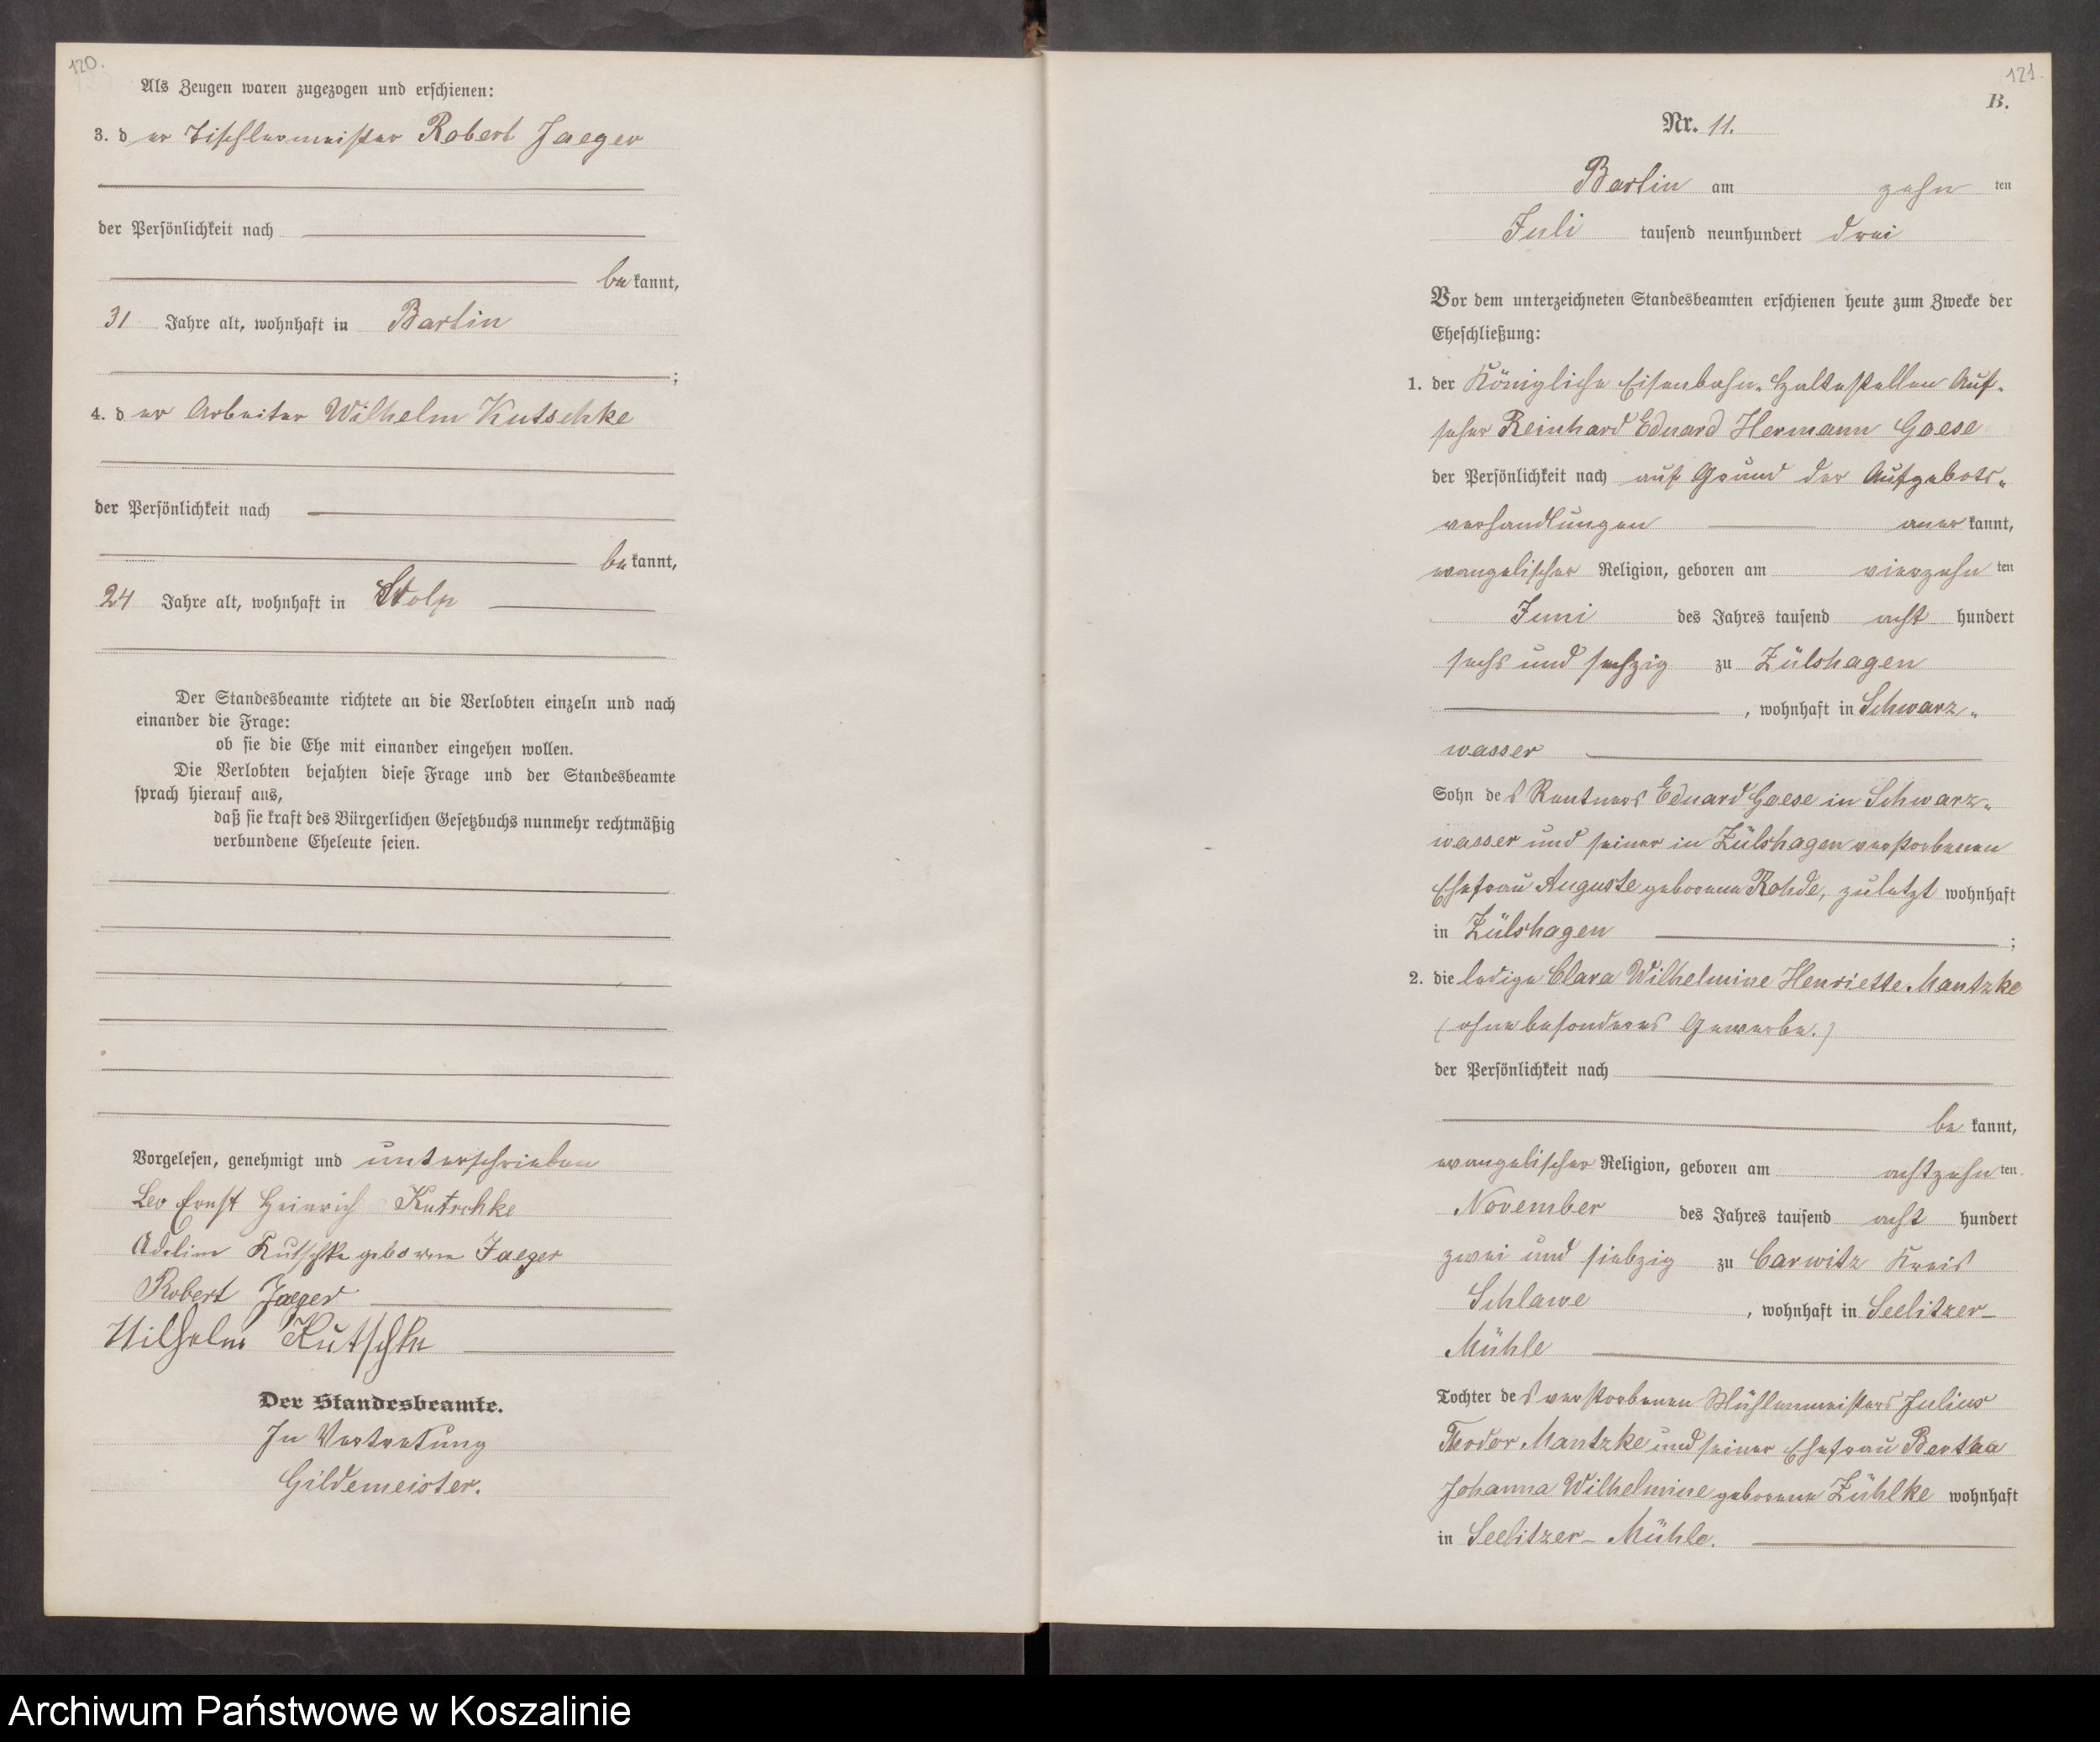 120.
Als Zeugen waren zugezogen und erschienen:
3. der Tischlermeister Robert Jaeger
der Persönlichkeit nach
bekannt,
31 Jahre alt, wohnhaft in Bartin
;
4. der Arbeiter Wilhelm Kutschke
der Persönlichkeit nach
bekannt,
24 Jahre alt, wohnhaft in Stolp
Der Standesbeamte richtete an die Verlobten einzeln und nach
einander die Frage:
ob sie die Ehe mit einander eingehen wollen.
Die Verlobten bejahten diese Frage und der Standesbeamte
sprach hierauf aus,
daß sie kraft des Bürgerlichen Gesetzbuchs nunmehr rechtmäßig
verbundene Eheleute seien.
Vorgelesen, genehmigt und unterschrieben
Leo Ernst Heinrich Kutschke
Adeline Kutschke geborene Jaeger
Robert Jaeger
Wilhelm Kutschke
Der Standesbeamte.
In Vertretung
Gildemeister.
121.
B.
Nr. 11.
Bartin am zehn ten
Juli tausend neunhundert drei
Vor dem unterzeichneten Standesbeamten erschienen heute zum Zwecke der
Eheschließung:
1. der Königliche Eisenbahn-Haltestellen Auf-
seher Reinhard Eduard Hermann Goese
der Persönlichkeit nach auf Grund der Aufgebots-
verhandlungen anerkannt,
evangelischer Religion, geboren am vierzehn ten
Juni des Jahres tausend acht hundert
sechs und sechzig zu Zülshagen
, wohnhaft in Schwarz-
wasser
Sohn des Rentners Eduard Goese in Schwarz-
wasser und seiner in Zülshagen verstorbenen
Ehefrau Auguste geborene Rohde, zuletzt wohnhaft
in Zülshagen ;
2. die ledige Clara Wilhelmine Henriette Mantzke
(ohne besonderes Gewerbe.)
der Persönlichkeit nach
be kannt,
evangelischer Religion, geboren am achtzehn ten
November des Jahres tausend acht hundert
zwei und siebzig zu Carwitz Kreis
Schlawe , wohnhaft in Seelitzer-
Mühle
Tochter des verstorbenen Mühlenmeisters Julius
Theodor Mantzke und seiner Ehefrau Bertha
Johanna Wilhelmine geborene Zühlke wohnhaft
in Seelitzer-Mühle.
Archiwum Państwowe w Koszalinie